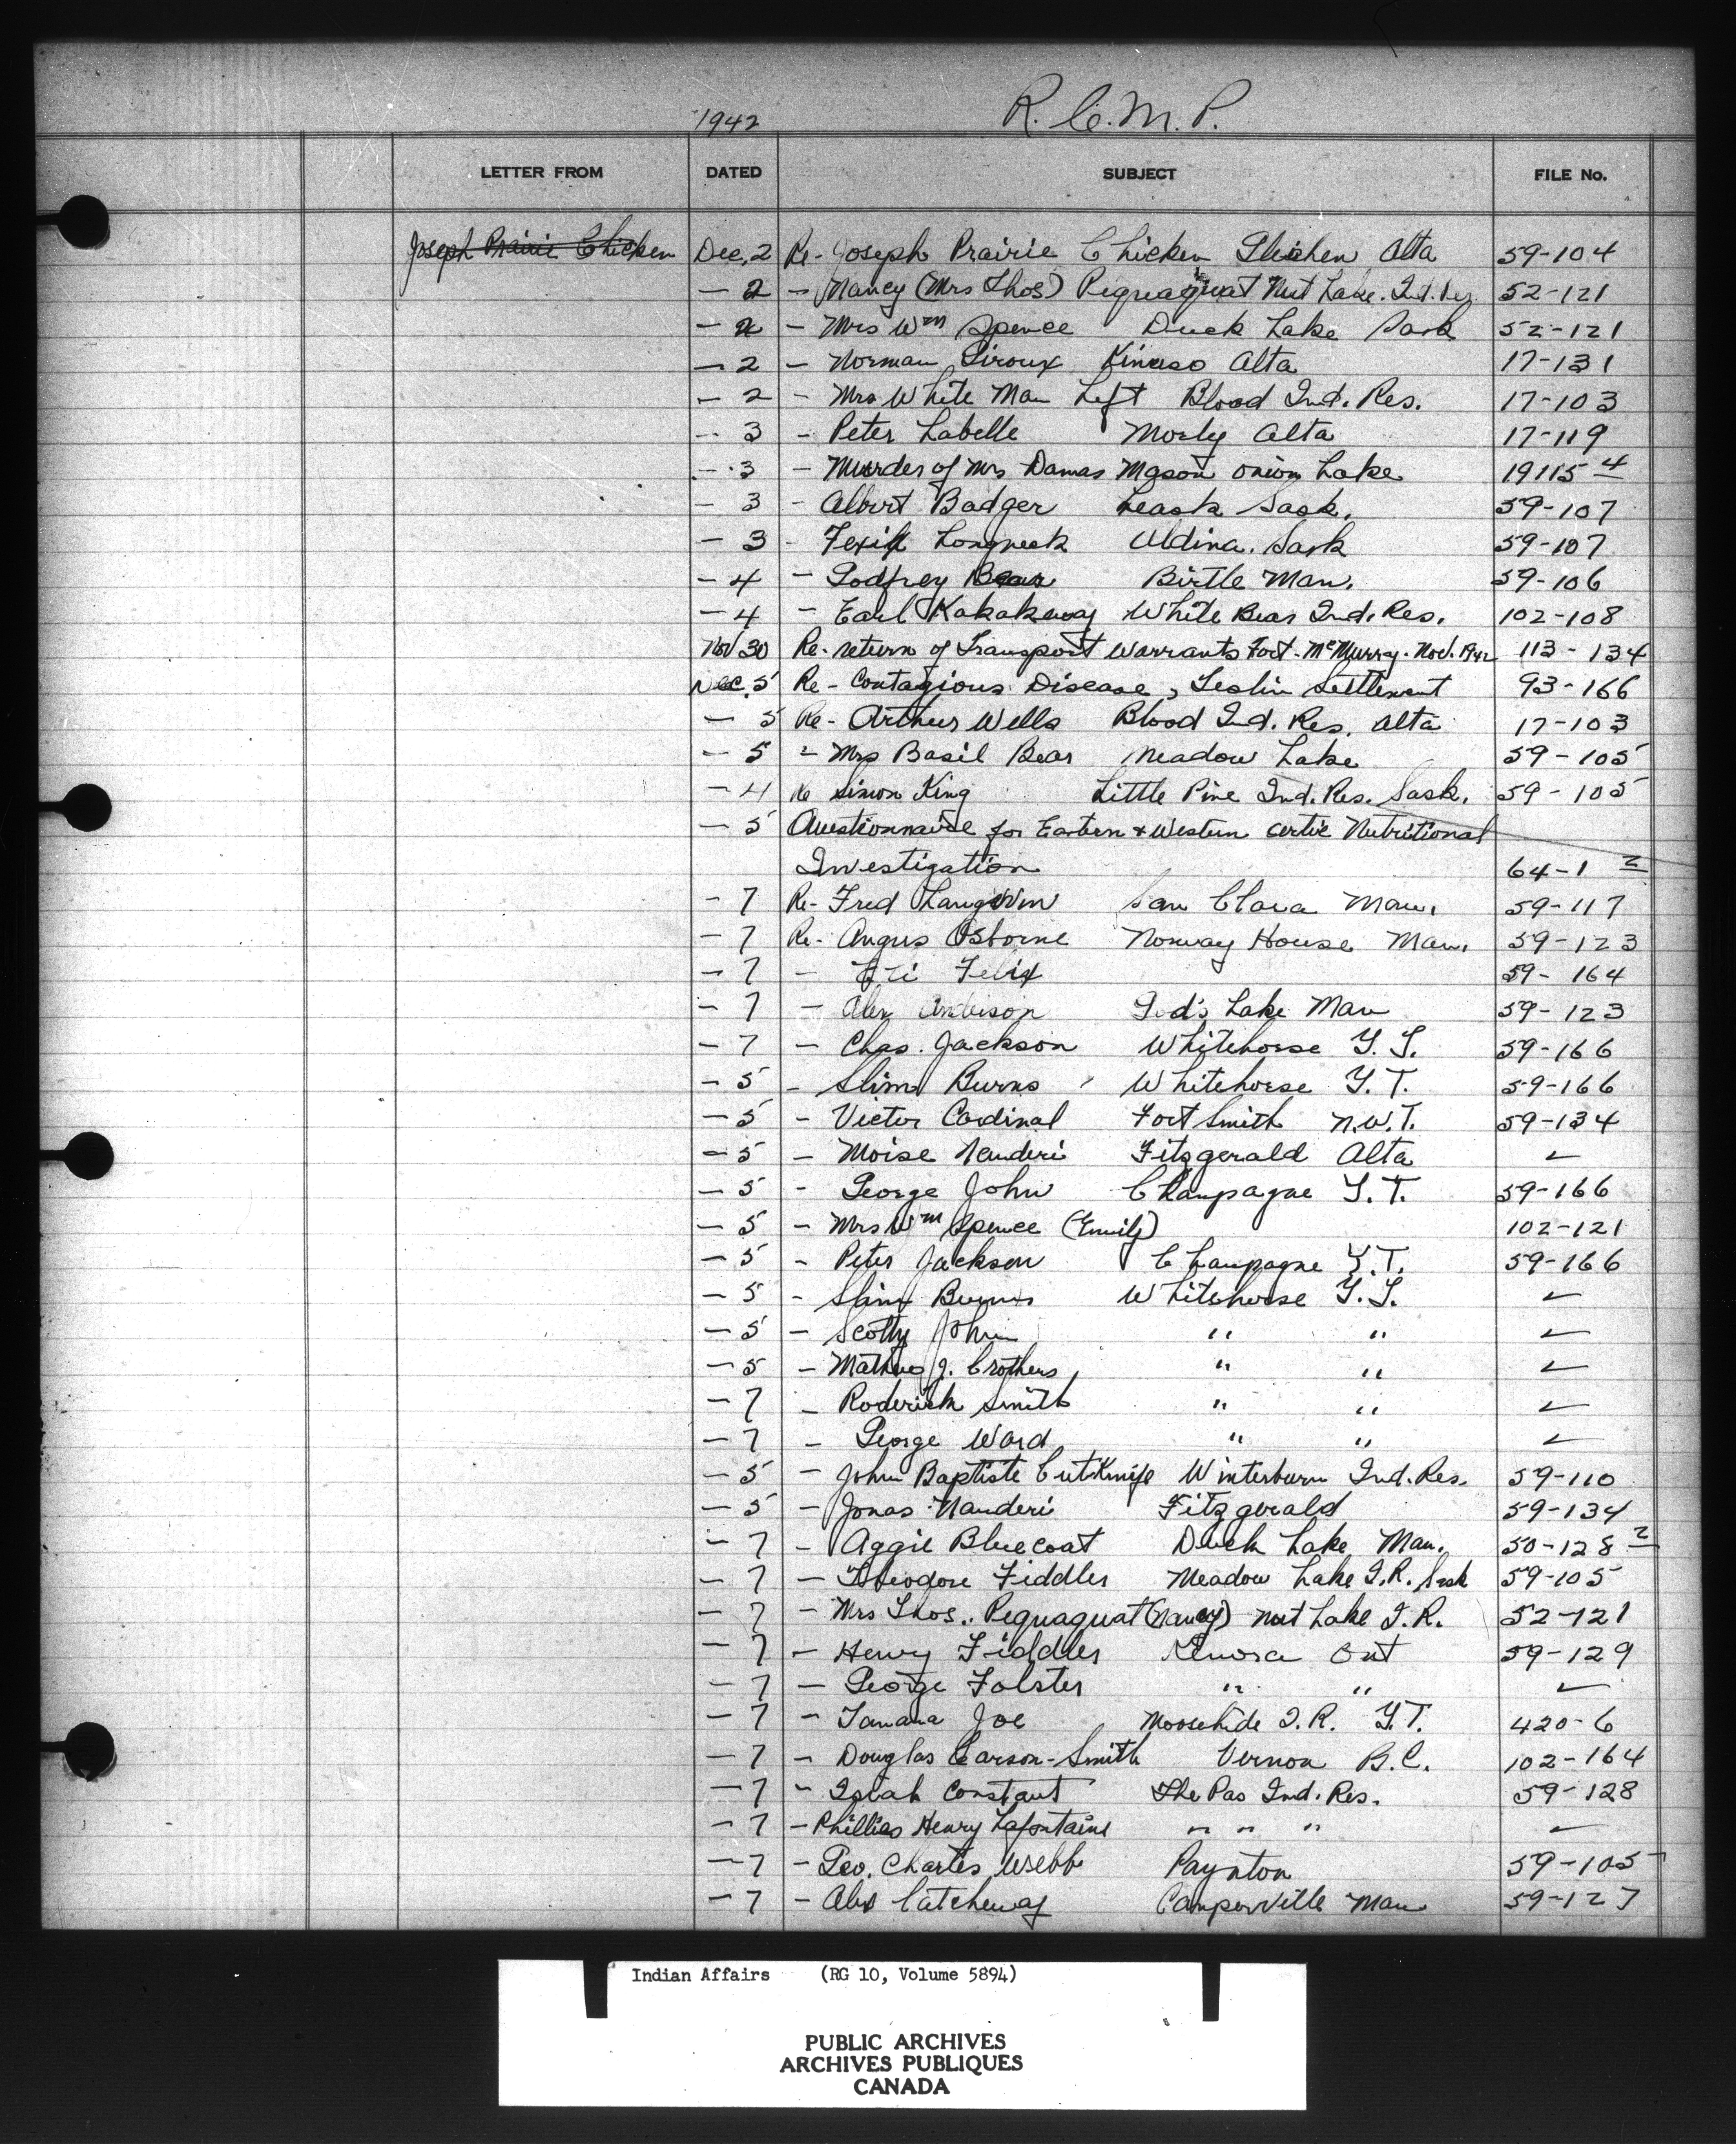 1942 R.C.M.P.
LETTER FROM DATED SUBJECT FILE No.
Joseph Prairie Chicken Dec. 2 Re- Joseph Prairie Chicken Gleichen Alta 59-104
- 2 - Nancy (Mrs Thos) Pequaquat Nut Lake. Ind. Res. 52-121
- 2 - Mrs Wm Spence Duck Lake Sask 52-121
- 2 - Norman Giroux Kinuso Alta 17-131
- 2 - Mrs White Man Left Blood Ind. Res. 17-103
- 3 - Peter Labelle Morly Alta 17-119
- 3 - Murder of Mrs Damas Mason Onion Lake 19115-4
- 3 - Albert Badger Leask Sask. 59-107
- 3 - Longneck Aldina. Sask 59-107
- 4 - Godfrey Bear Birtle Man. 59-106
- 4 - Earl Kakakeway White Bear Ind. Res. 102-108
Nov 30 Re- return of Transport Warrants Fort-McMurry-Nov. 1942 113-134
Dec. 5 Re- Contagious Disease, Teslin Settlement 93-166
- 5 Re- Arthur Wells Blood Ind. Res. Alta 17-103
- 5 - Mrs Basil Bear Meadow Lake 59-105
- 4 Re Simon King Little Pine Ind. Res. Sask. 59-105
- 5 Questionnaire for Eastern & Western Artic Nutritional
Investigation 64-1 2
- 7 Re- Fred Langevin San Clara Man. 59-117
- 7 Re- Angus Osborne Norway House Man. 59-123
- 7 - Felix 59-164
- 7 - Alex Anderson God's Lake Man 59-123
- 7 - Chas. Jackson Whitehorse Y.T. 59-166
- 5 - Slim Burns Whitehorse Y.T. 59-166
- 5 - Victor Cardinal Fort Smith N.W.T. 59-134
- 5 - Moise Nanderi Fitzgerald Alta ✓
- 5 - George John Champagne Y.T. 59-166
- 5 - Mrs Wm Spence (Emily) 102-121
- 5 - Peter Jackson Champagne Y.T. 59-166
- 5 - Slim Burns Whitehorse Y.T. ✓
- 5 - Scotty John " " ✓
- 5 - J. Crothers " " ✓
- 7 - Roderick Smith " " ✓
- 7 - George Ward " " ✓
- 5 - John Baptiste CutKnife Winterburn Ind. Res. 59-110
- 5 - Jonas Nanderi Fitzgerald 59-134
- 7 - Aggie Bluecoat Duck Lake Man. 50-128-2
- 7 - Theodore Fiddler Meadow Lake I.R. Sask 59-105
- 7 - Mrs Thos.. Pequaquat (Nancy) Nut Lake I.R. 52-121
- 7 - Henry Fiddler Kenora Ont 59-129
- 7 - George Folster " " ✓
- 7 - Tanana Joe Moosehide I.R. Y.T. 420-6
- 7 - Douglas Carson-Smith Vernon B.C. 102-164
- 7 - Isiah Constant The Pas Ind. Res. 59-128
- 7 - Phillias Henry Lafontaine " " " ✓
- 7 - Geo. Charles Webb Paynton 59-105
- 7 - Alex Catcheway Camperville Man 59-127
Indian Affairs (RG 10, Volume 5894)
PUBLIC ARCHIVES
ARCHIVES PUBLIQUES
CANADA